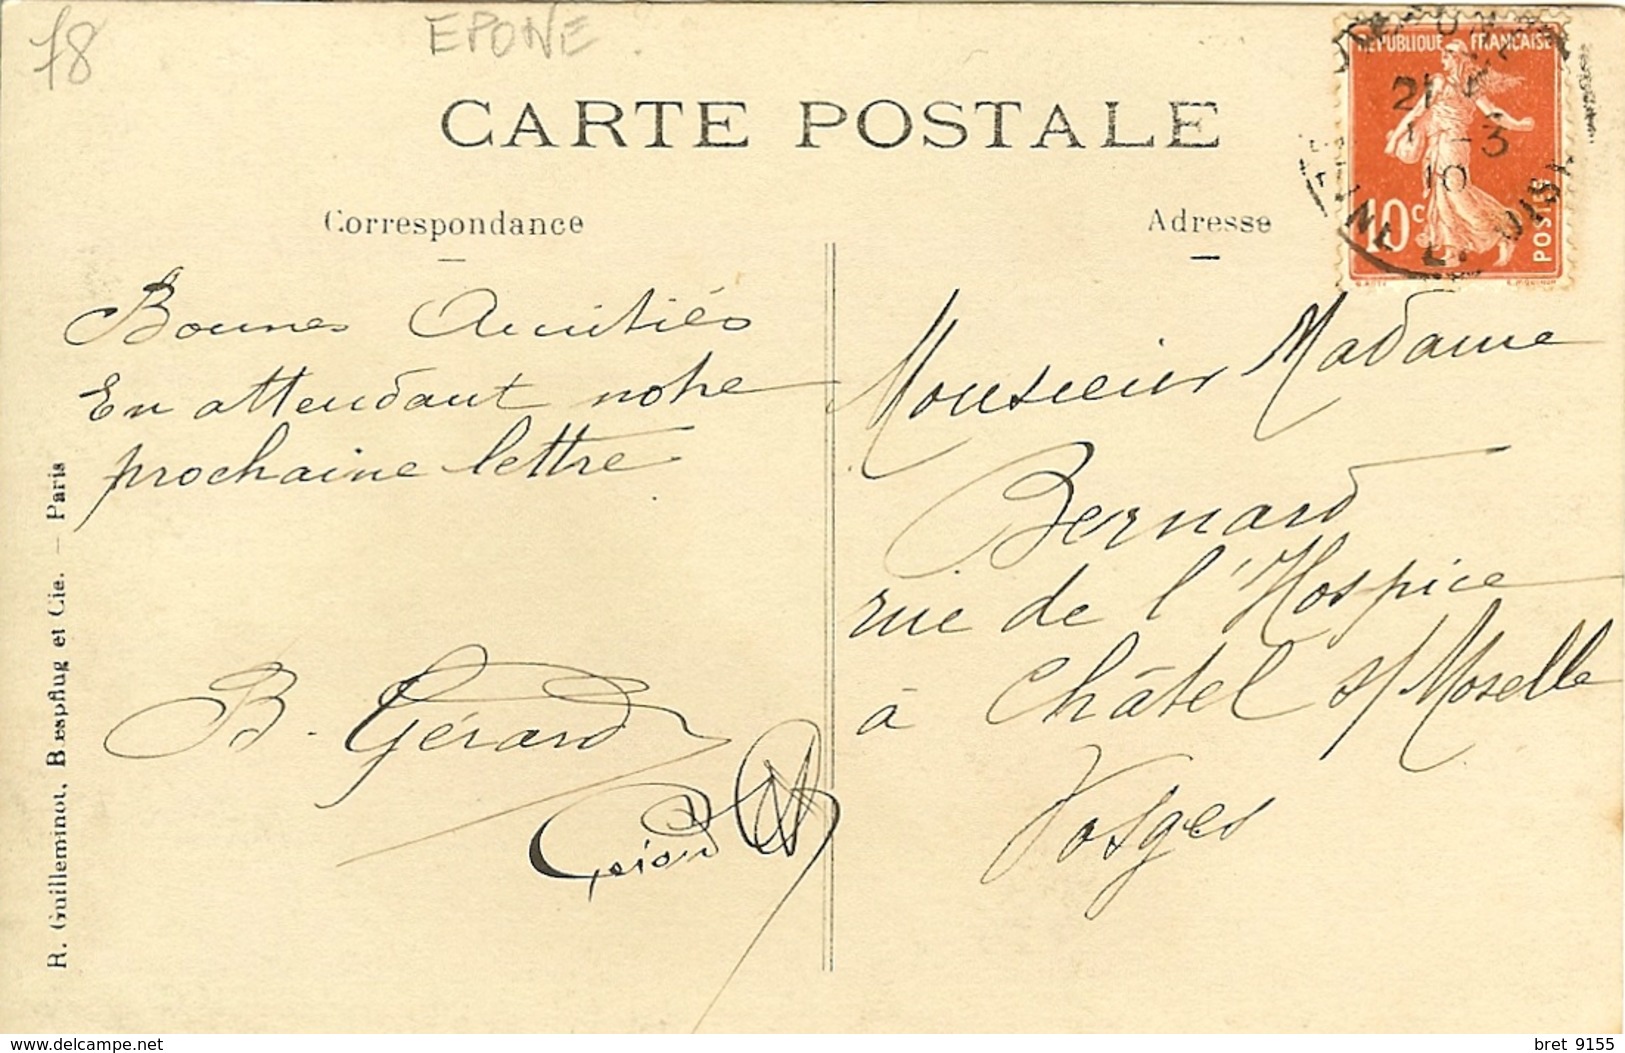 78
EPONE
CARTE POSTALE
Correspondance
Adresse
REPUBLIQUE FRANÇAISE
10c
POSTES
21
-3
10
Bonnes Amitiés
En attendant notre
prochaine lettre
B. Gérard
Monsieur Madame
Bernard
rue de l'Hospice
à Châtel s/ Moselle
Vosges
R. Guilleminot, Bœspflug et Cie. — Paris
delcampe.net
bret 9155